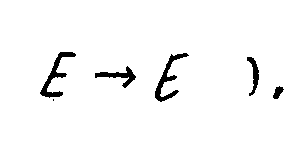 E → E ).